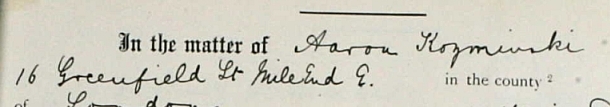 In the matter of Aaron Kozminski
16 Greenfield St Mile End E. in the county 2
of London